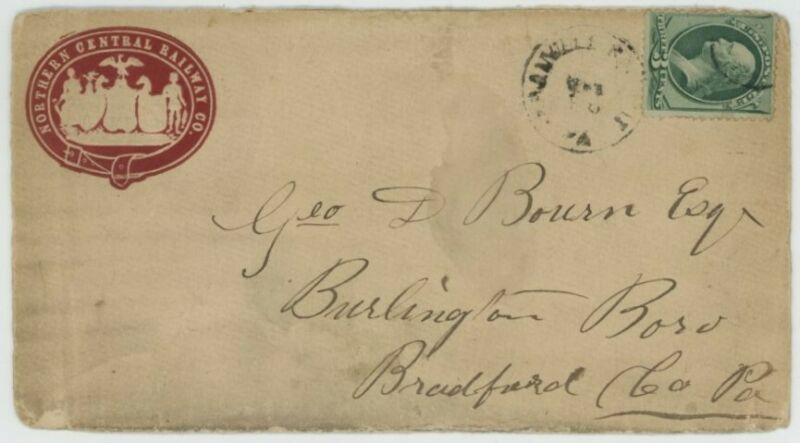 NORTHERN CENTRAL RAILWAY CO.
PA
Geo D Bourn Esq.
Burlington Boro
Bradford Co Pa